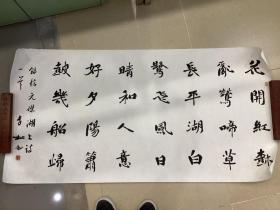 花開紅樹
亂鶯啼草
長平湖白
鷺飛風日
晴和人意
好夕陽簫
鼓幾船歸
錄徐元傑湖上詩
一首